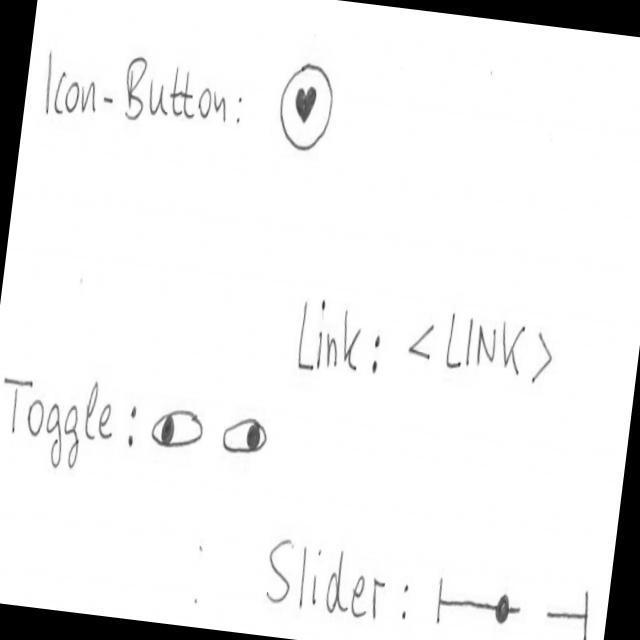 Icon-Button:
Link: <LINK>
Toggle:
Slider: